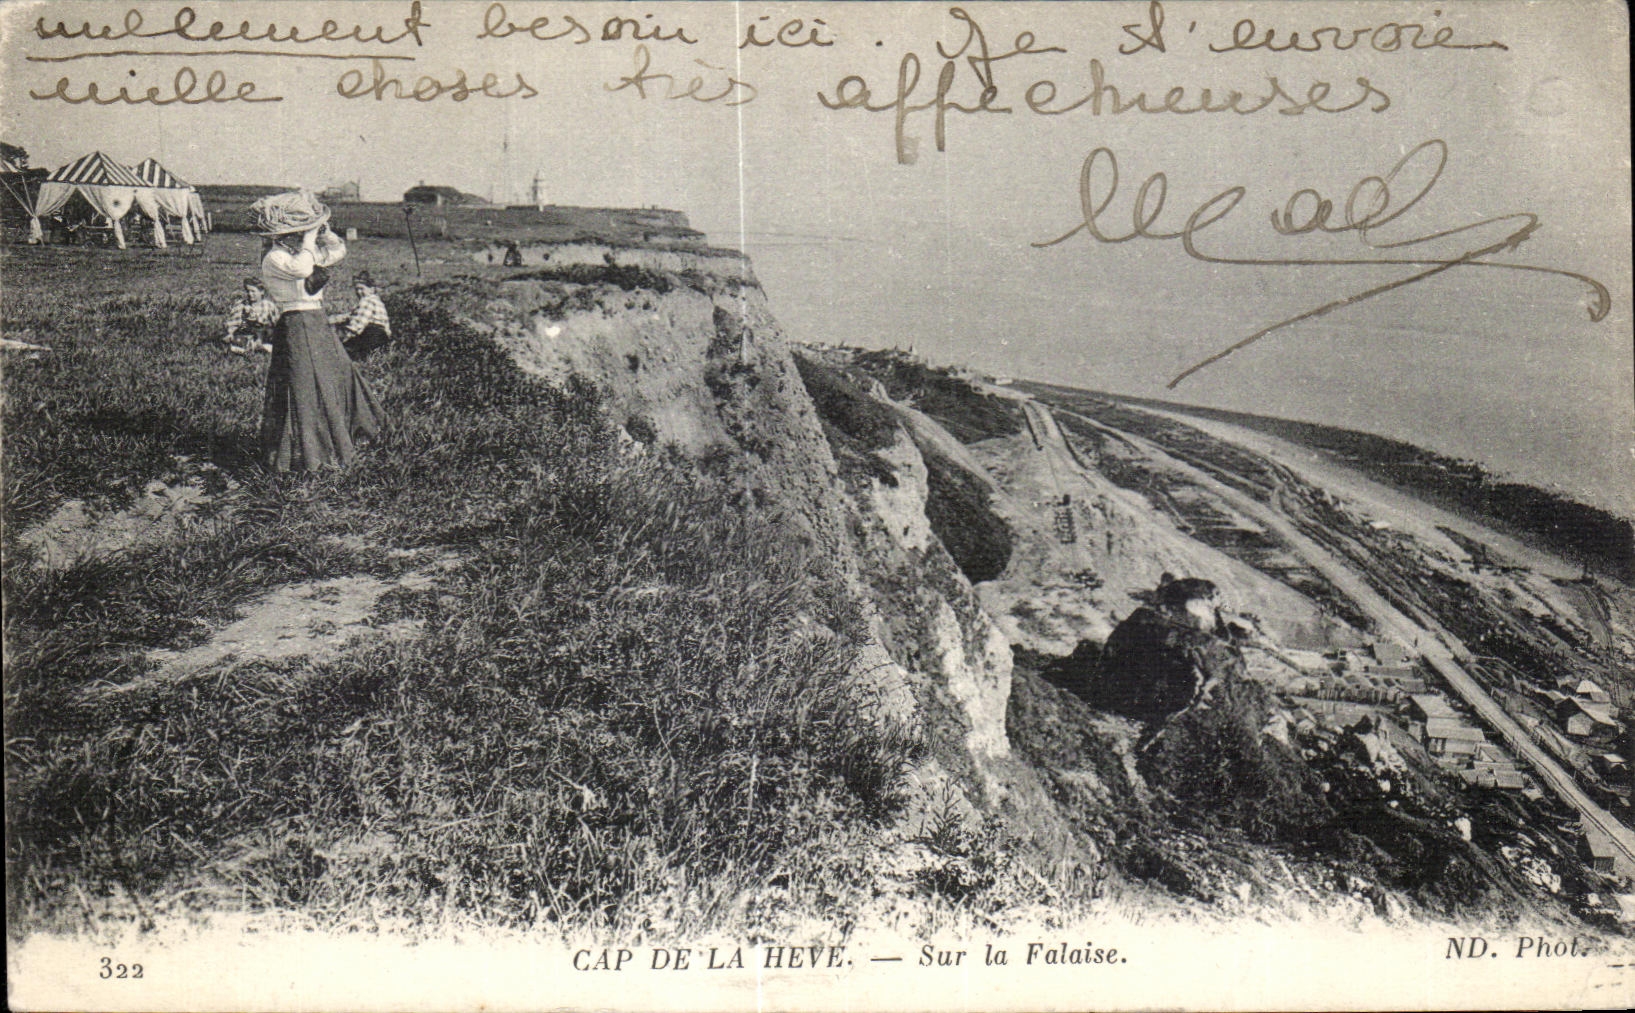 nullement besoin ici. Je t'envoie
mille choses très affectueuses
322
CAP DE LA HEVE. — Sur la Falaise.
ND. Phot.